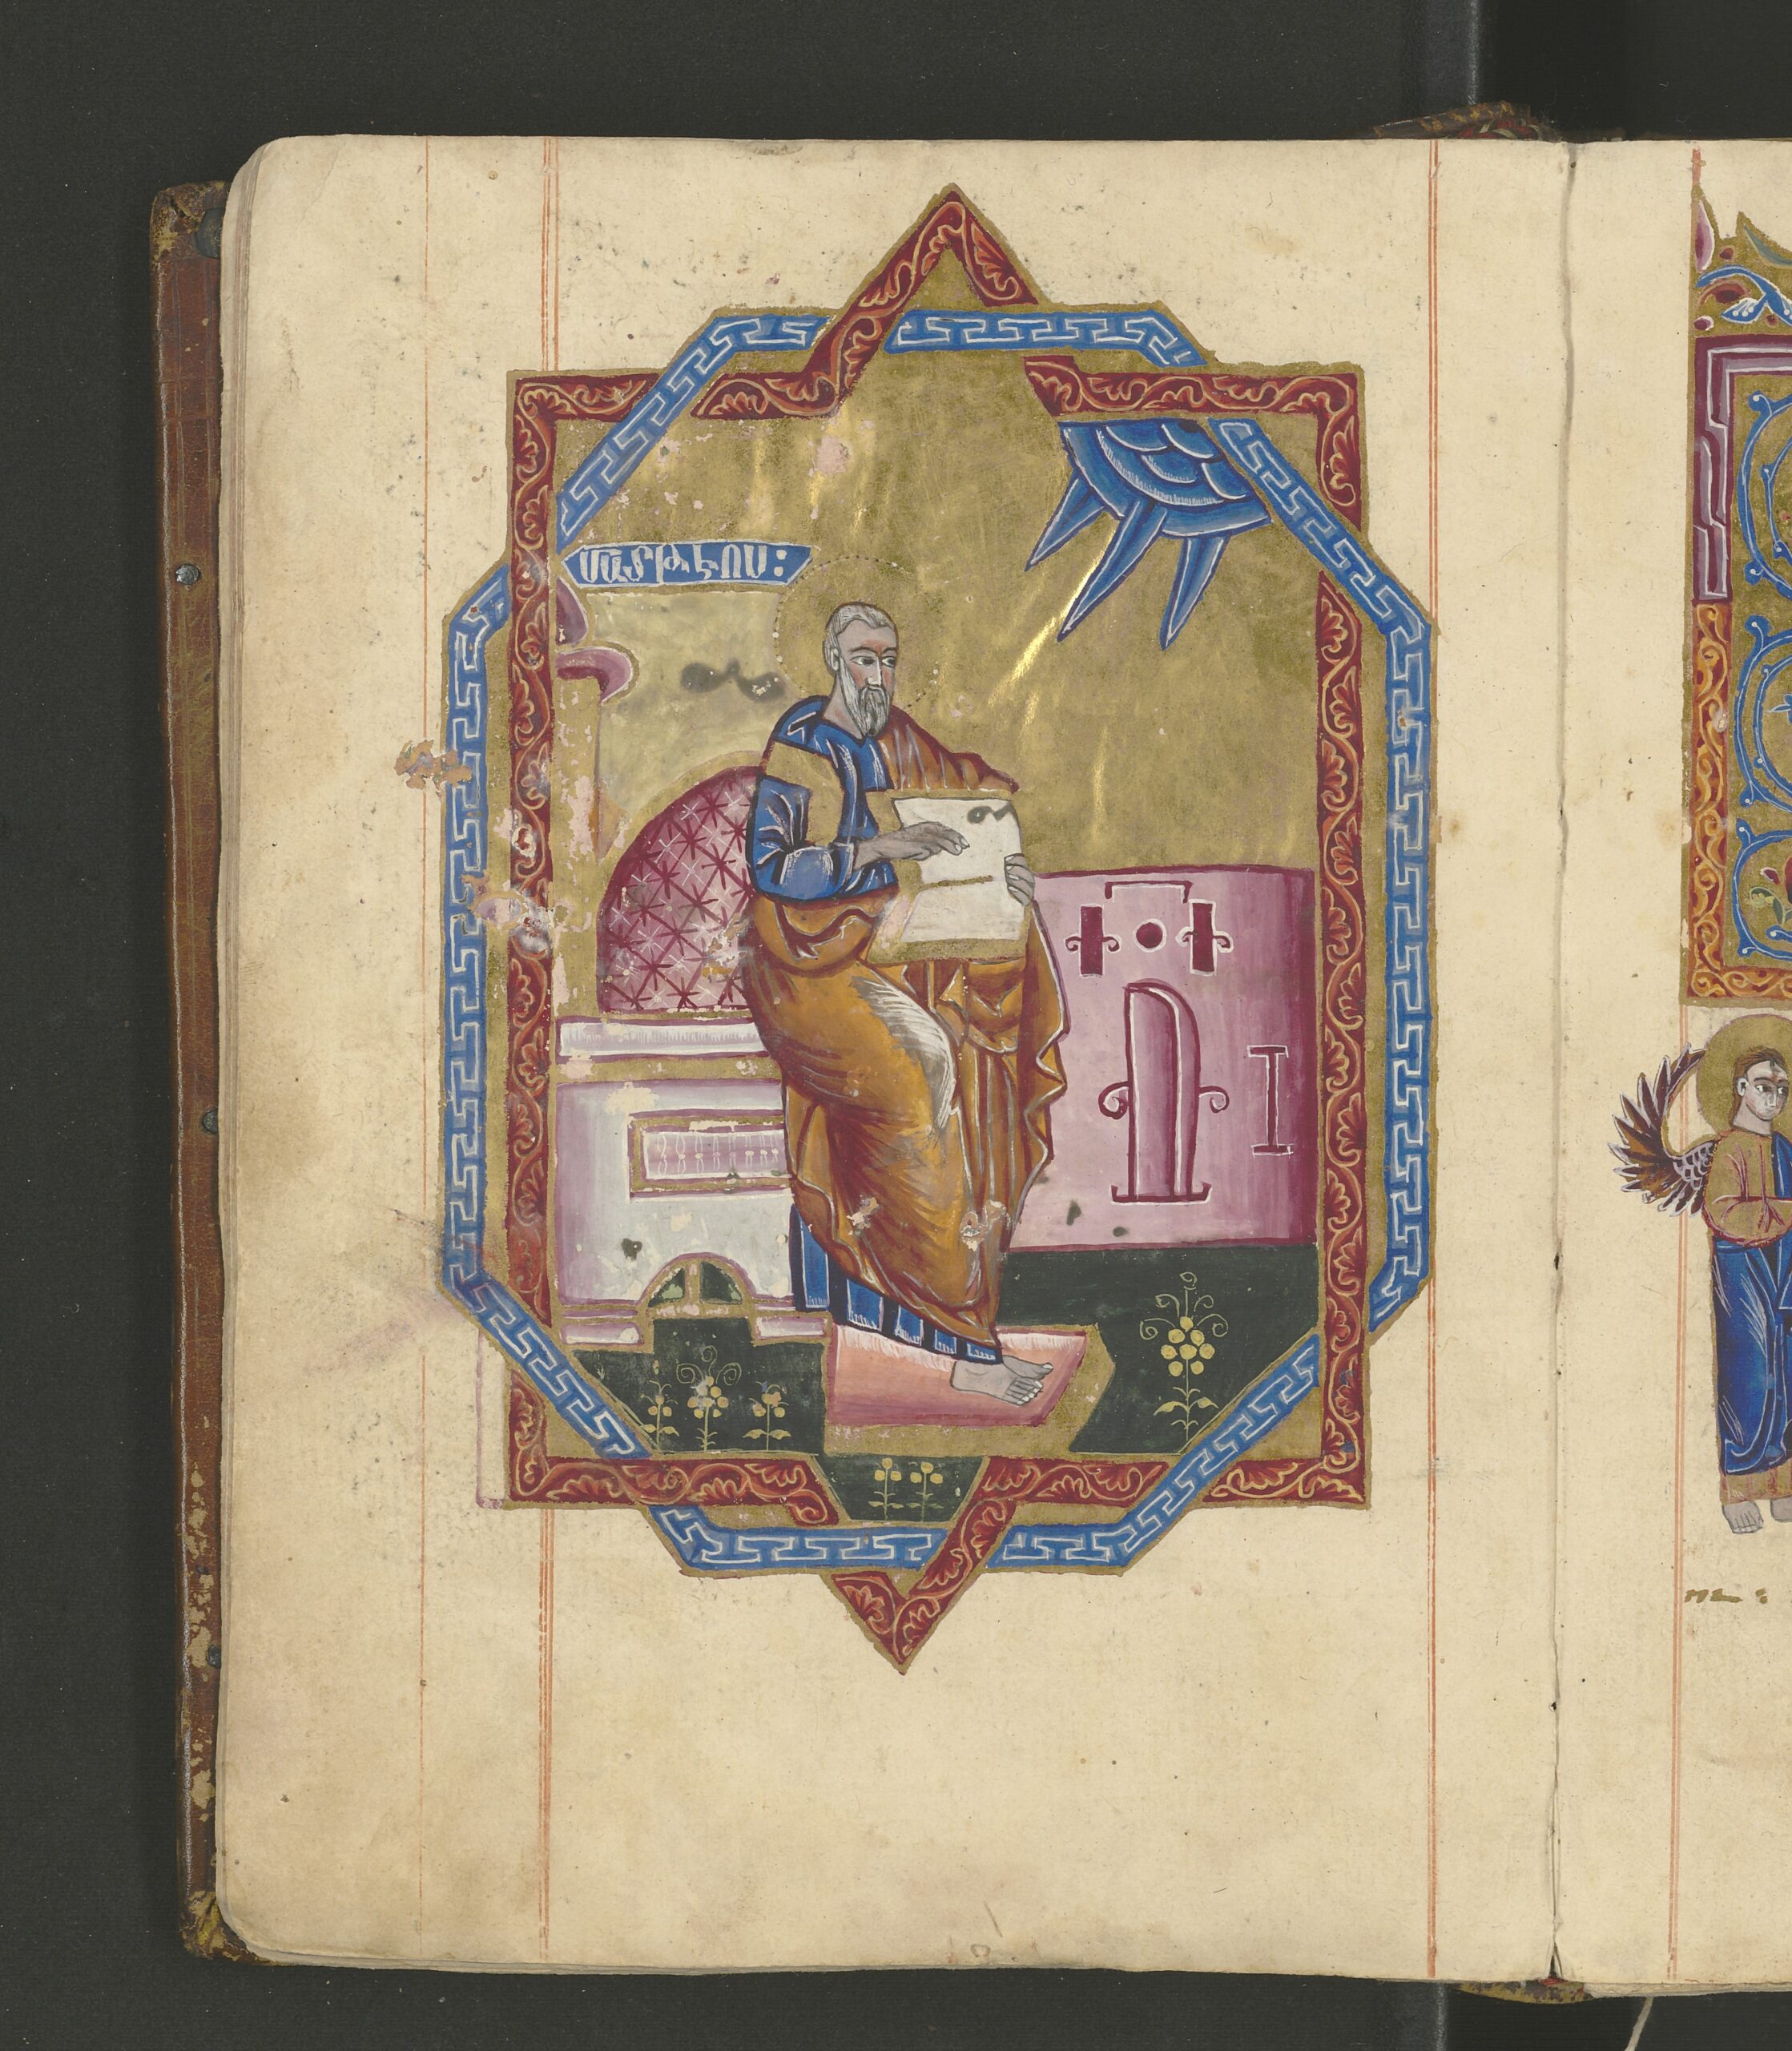 ՄԱՏԹԷՈՍ։